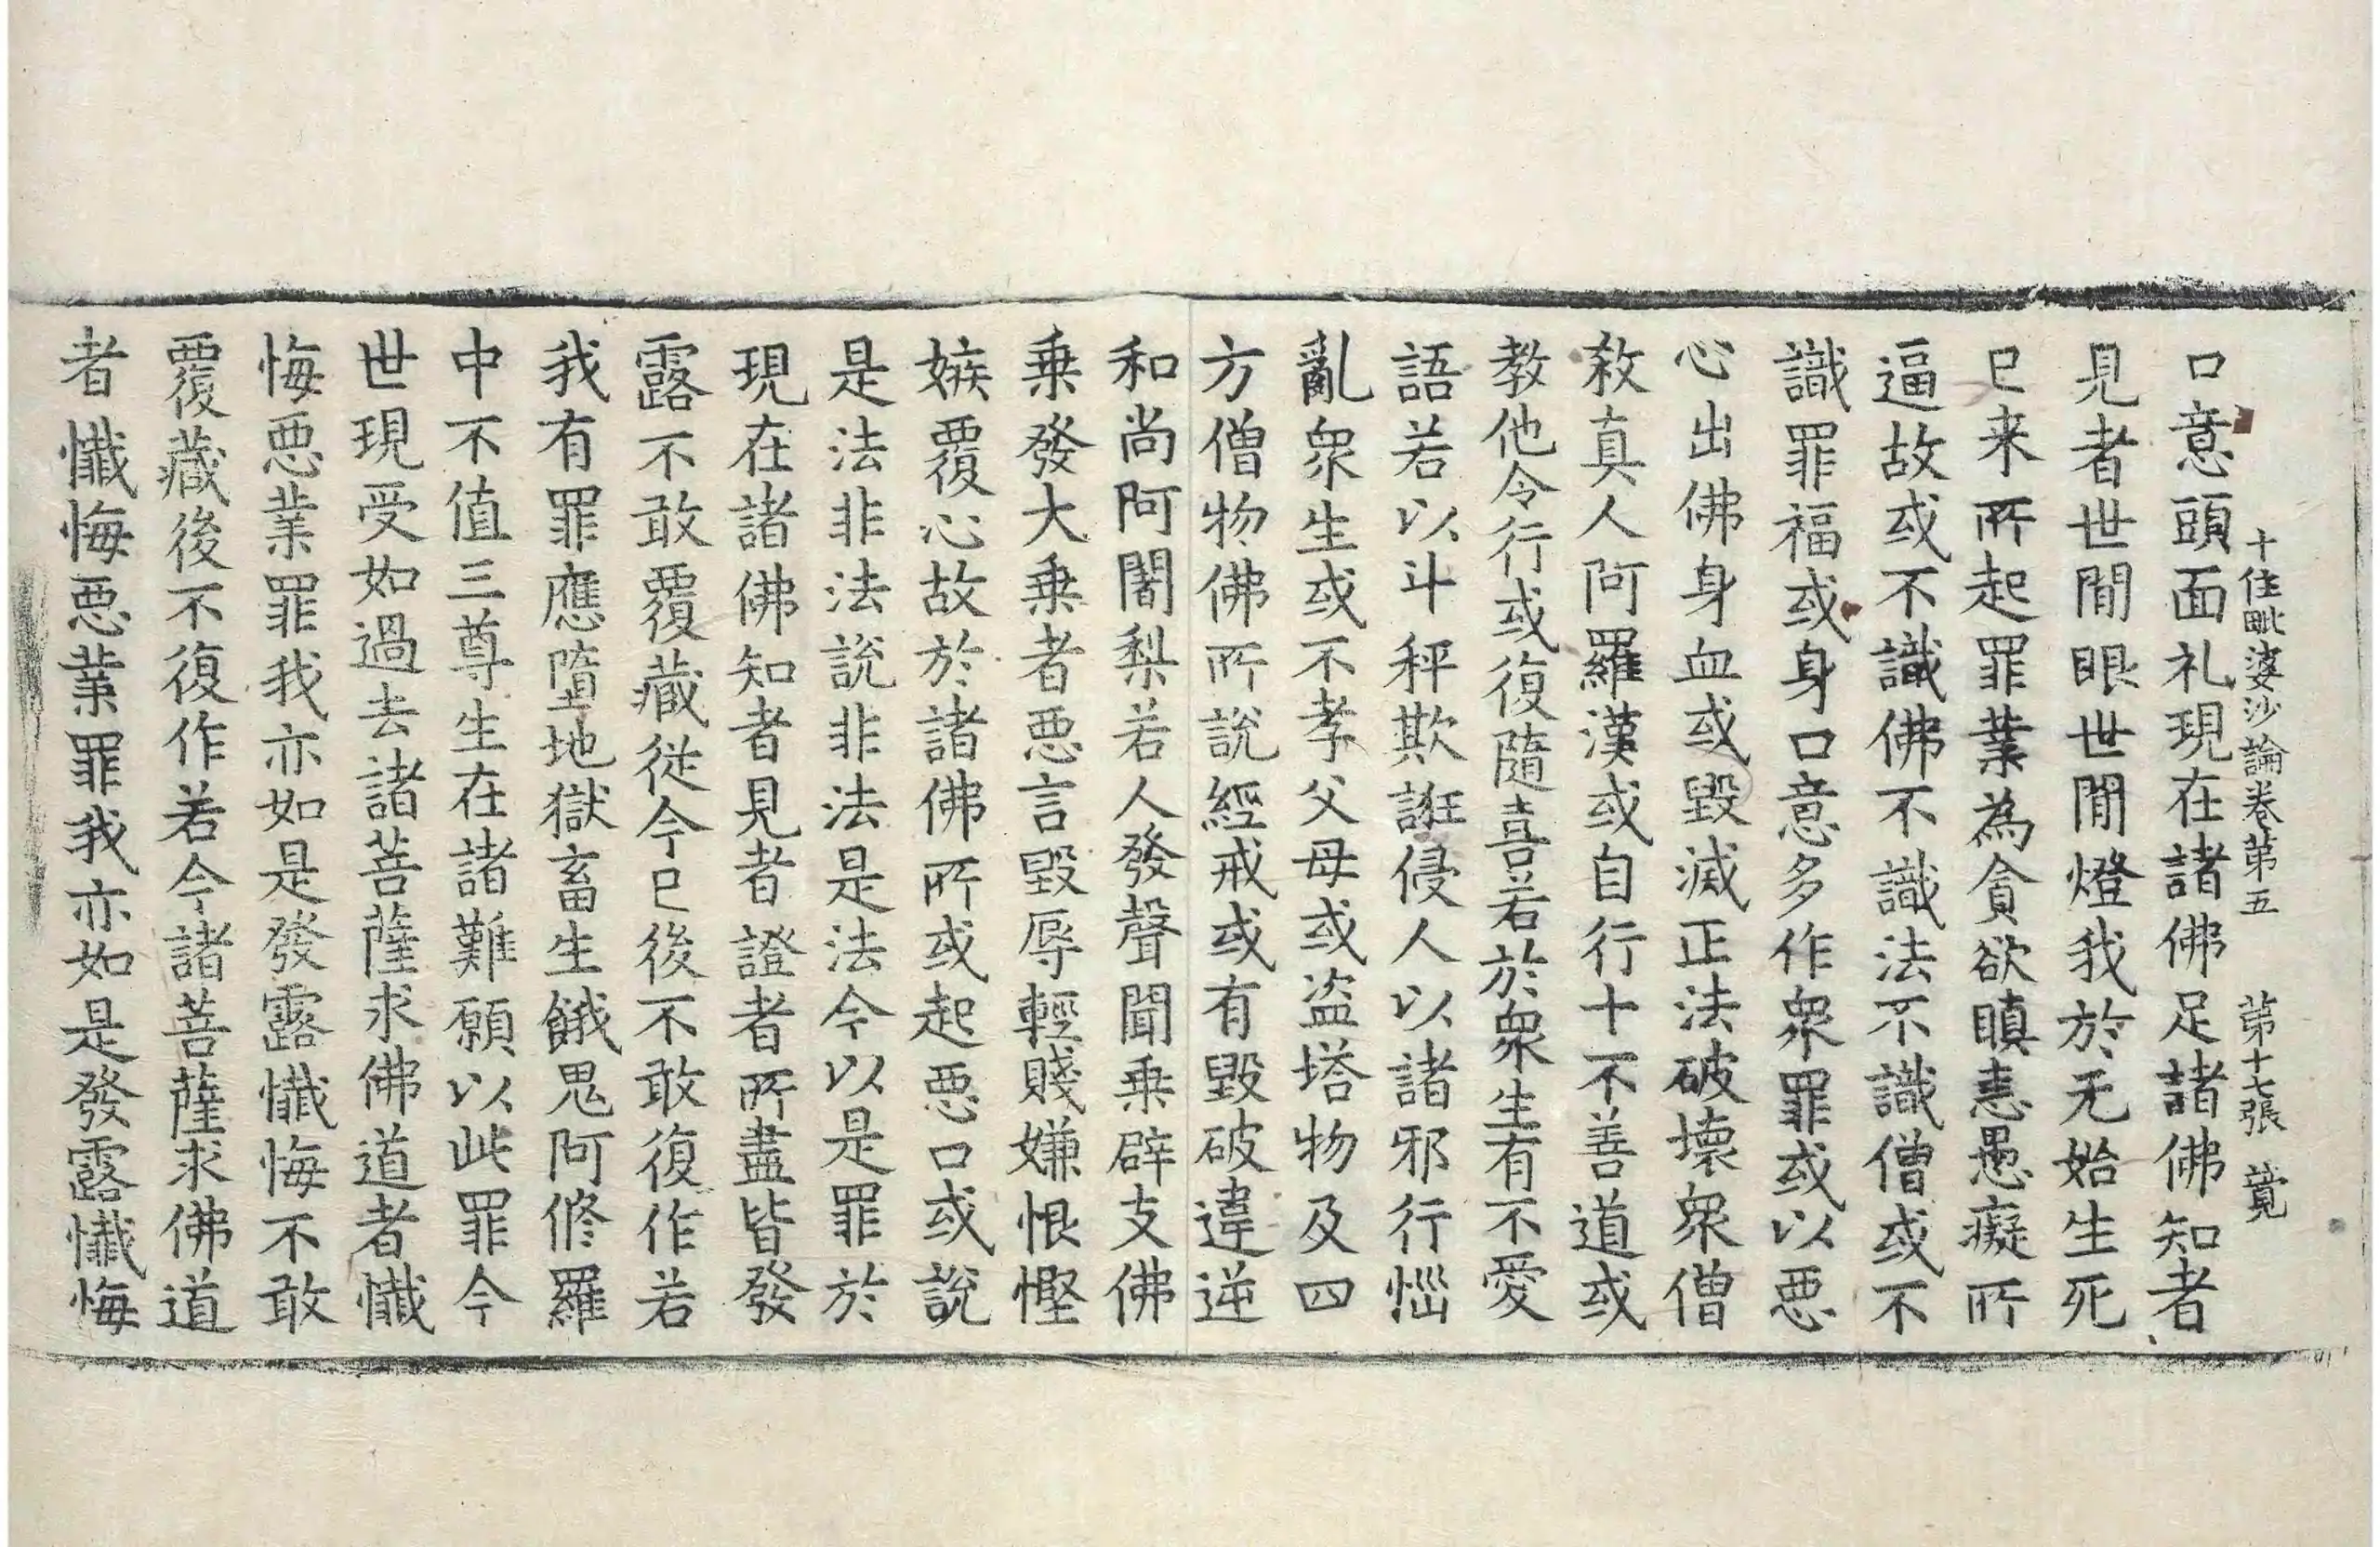 十住毗婆沙論卷第五　第十七張　莧
口意頭面礼現在諸佛足諸佛知者
見者世間眼世間燈我於无始生死
已来所起罪業為貪欲瞋恚愚癡所
逼故或不識佛不識法不識僧或不
識罪福或身口意多作衆罪或以悪
心出佛身血或毀滅正法破壞衆僧
敎真人阿羅漢或自行十不善道或
教他令行或復隨喜若於衆生有不愛
語若以斗秤欺誑侵人以諸邪行惱
亂衆生或不孝父母或盜塔物及四
方僧物佛所說經戒或有毀破違逆
和尚阿闍梨若人發聲聞乗辟支佛
乗發大乗者悪言毀辱輕賤嫌恨慳
嫉覆心故於諸佛所或起悪口或說
是法非法說非法是法今以是罪於
現在諸佛知者見者證者所盡皆發
露不敢覆藏從今已後不敢復作若
我有罪應墮地獄畜生餓鬼阿修羅
中不值三尊生在諸難願以此罪今
世現受如過去諸菩薩求佛道者懺
悔悪業罪我亦如是發露懺悔不敢
覆藏後不復作若今諸菩薩求佛道
者懺悔悪業罪我亦如是發露懺悔